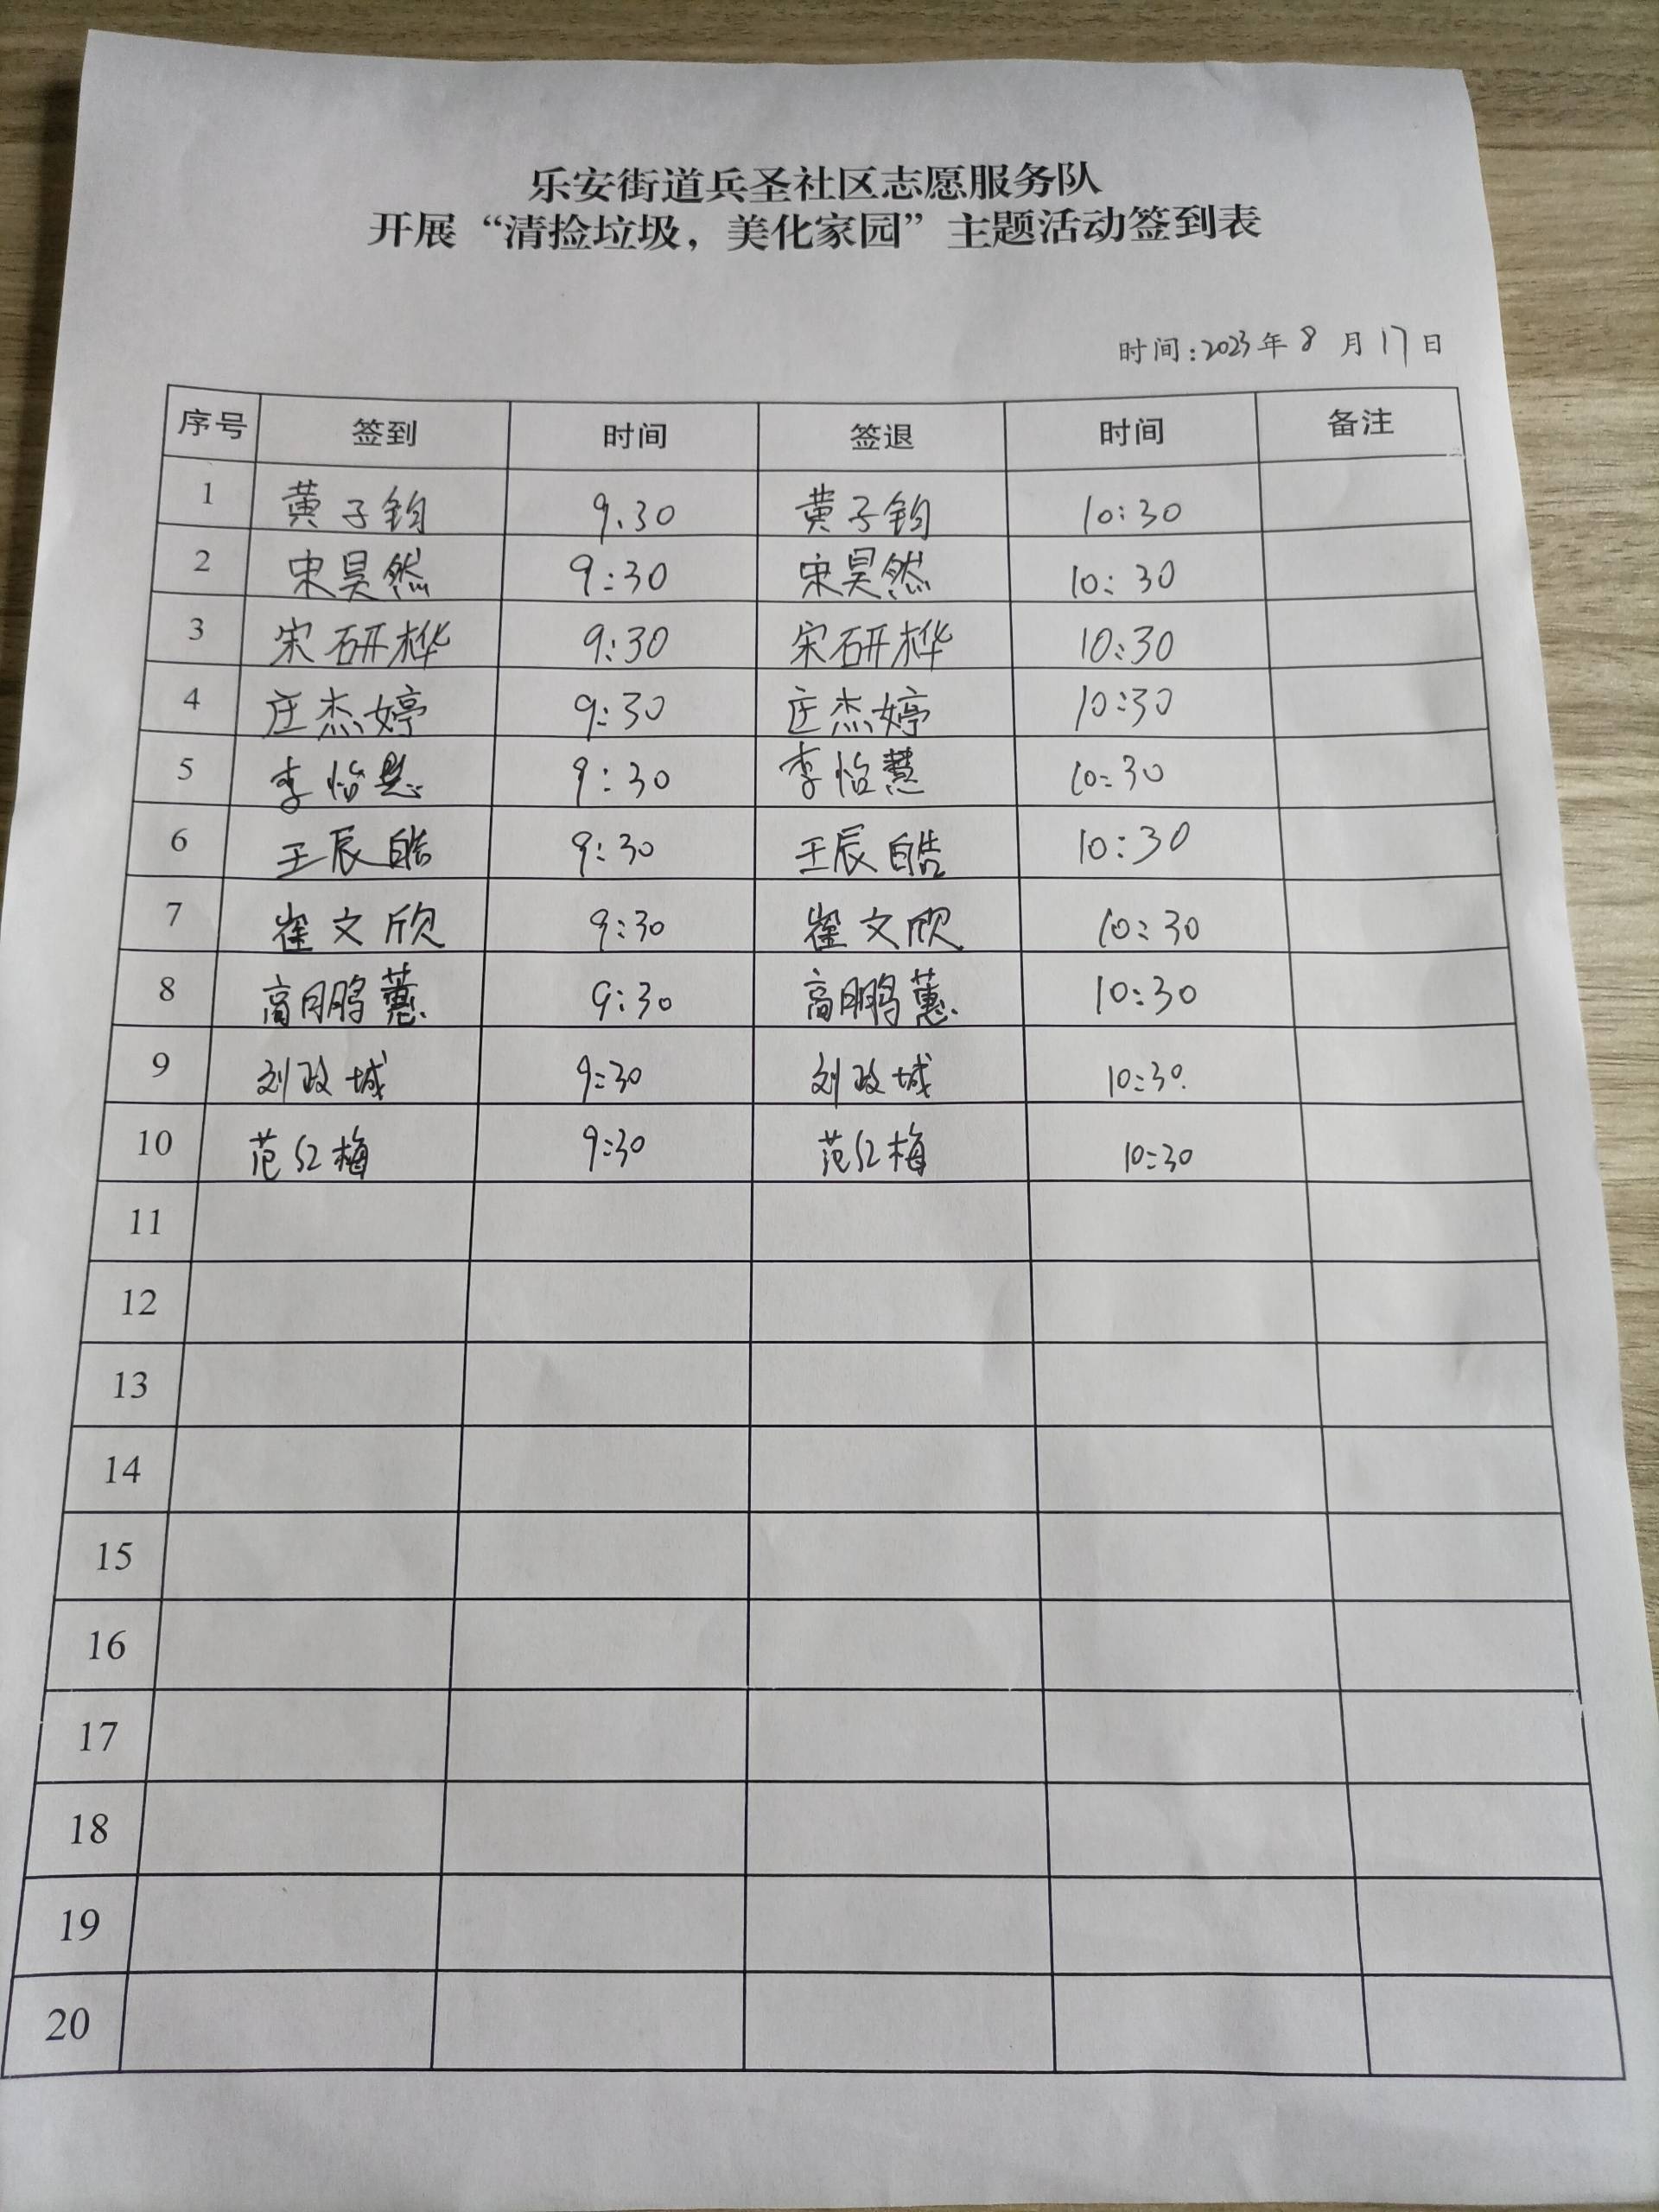 乐安街道兵圣社区志愿服务队
开展“清捡垃圾，美化家园”主题活动签到表
时间：2023年 8 月 17 日
序号 签到 时间 签退 时间 备注
1 黄子钧 9.30 黄子钧 10:30
2 宋昊然 9:30 宋昊然 10:30
3 宋研桦 9:30 宋研桦 10:30
4 杰婷 9:30 杰婷 10:30
5 李怡慧 9:30 李怡慧 10:30
6 王辰皓 9:30 王辰皓 10:30
7 崔文欣 9:30 崔文欣 10:30
8 高鹏蕙 9:30 高鹏蕙 10:30
9 刘政城 9:30 刘政城 10:30
10 范红梅 9:30 范红梅 10:30
11
12
13
14
15
16
17
18
19
20